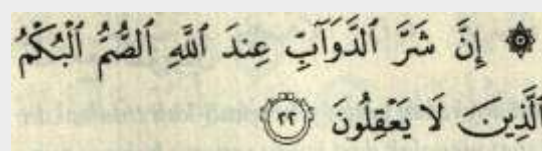 ۞ إِنَّ شَرَّ ٱلدَّوَآبِّ عِندَ ٱللَّهِ ٱلصُّمُّ ٱلْبُكْمُ
ٱلَّذِينَ لَا يَعْقِلُونَ ٢٢